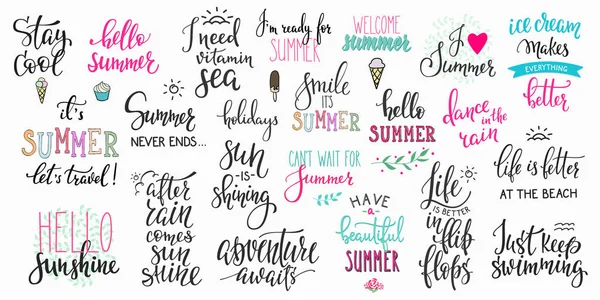 Stay
Cool
hello
Summer
I need
vitamin
sea
I'm ready for
SUMMER
WELCOME
summer
I
Summer
ice cream
makes
EVERYTHING
better
it's
SUMMER
let's travel!
Summer
NEVER ENDS...
holidays
Smile
IT'S
SUMMER
hello
SUMMER
dance
in the
rain
life is better
AT THE BEACH
sun
-IS-
shining
CAN'T WAIT FOR
Summer
HELLO
Sunshine
after
rain
comes
sun
shine
adventure
awaits
HAVE
-a-
beautiful
SUMMER
Life
IS BETTER
in
flip
flops
Just keep
swimming